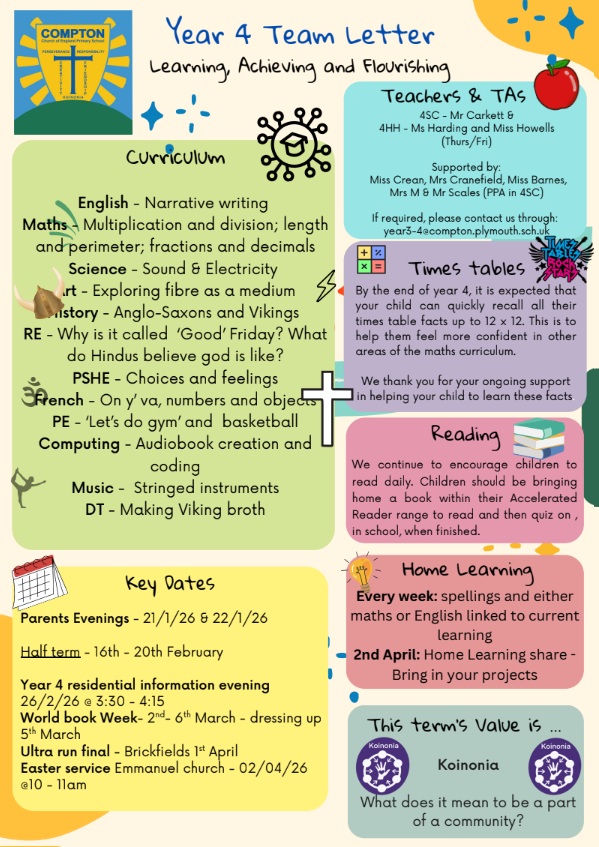 COMPTON
Church of England Primary School
PERSEVERANCE RESPONSIBILITY
Year 4 Team Letter
Learning, Achieving and Flourishing
Curriculum
English - Narrative writing
Maths - Multiplication and division; length
and perimeter; fractions and decimals
Science - Sound & Electricity
Art - Exploring fibre as a medium
History - Anglo-Saxons and Vikings
RE - Why is it called 'Good' Friday? What
do Hindus believe god is like?
PSHE - Choices and feelings
French - On y' va, numbers and objects
PE - 'Let's do gym' and basketball
Computing - Audiobook creation and
coding
Music - Stringed instruments
DT - Making Viking broth
Key Dates
Parents Evenings - 21/1/26 & 22/1/26
Half term - 16th - 20th February
Year 4 residential information evening
26/2/26 @ 3:30 - 4:15
World book Week- 2nd- 6th March - dressing up
5th March
Ultra run final - Brickfields 1st April
Easter service Emmanuel church - 02/04/26
@10 - 11am
Teachers & TAs
4SC - Mr Carkett &
4HH - Ms Harding and Miss Howells
(Thurs/Fri)
Supported by:
Miss Crean, Mrs Cranefield, Miss Barnes,
Mrs M & Mr Scales (PPA in 4SC)
If required, please contact us through:
year3-4@compton.plymouth.sch.uk
Times tables
TIMES TABLES ROCK STARS
By the end of year 4, it is expected that
your child can quickly recall all their
times table facts up to 12 x 12. This is to
help them feel more confident in other
areas of the maths curriculum.
We thank you for your ongoing support
in helping your child to learn these facts
Reading
We continue to encourage children to
read daily. Children should be bringing
home a book within their Accelerated
Reader range to read and then quiz on ,
in school, when finished.
Home Learning
Every week: spellings and either
maths or English linked to current
learning
2nd April: Home Learning share -
Bring in your projects
This term's Value is ...
Koinonia
Koinonia
Koinonia
What does it mean to be a part
of a community?